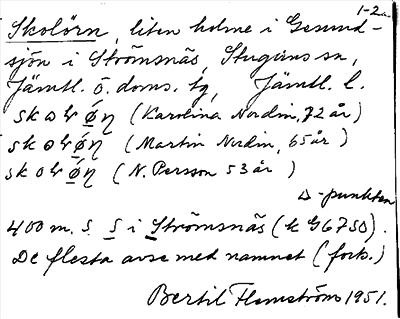 1-2a.
Skolörn, liten holme i Gesund-
sjön i Strömsnäs, Stuguns sn,
Jämtl. ö. doms. tg, Jämtl. l.
(Karolina Nordin, 72 år)
(Martin Nordin, 65 år)
(N. Persson 53 år)
Δ-punkten
400 m. S. S i Strömsnäs (k G6750).
De flesta avse med namnet (forts.)
Bertil Flemström 1951.